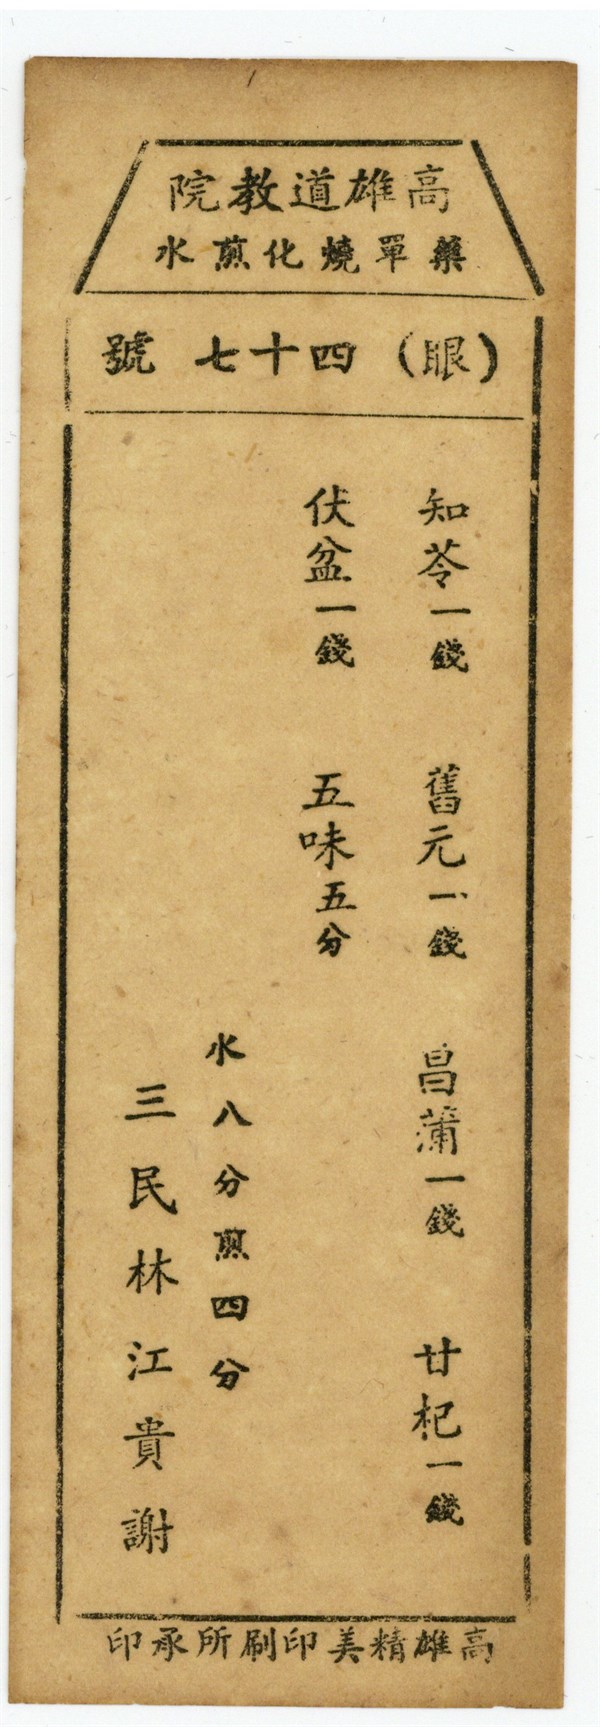 高雄道教院
藥單燒化煎水
(眼)四十七 號
知苓一錢 舊元一錢 昌蒲一錢 甘杞一錢
伏盆一錢 五味五分
水八分煎四分
三民林江貴謝
高雄精美印刷所承印